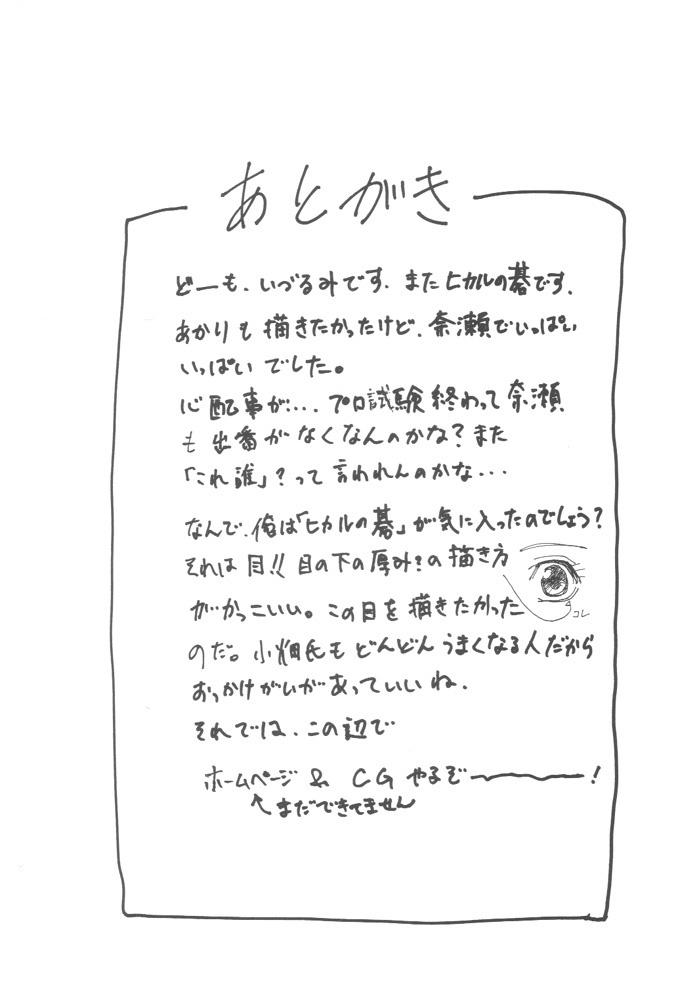 あとがき
どーも、いづるみです、またヒカルの碁です、
あかりも描きたかったけど、奈瀬でいっぱい
いっぱいでした。
心配事が…、プロ試験終わって奈瀬
も出番がなくなんのかな？また
「これ誰」？って言われんのかな…
なんで、俺は「ヒカルの碁」が気に入ったのでしょう？
それは目!!目の下の厚み？の描き方
がかっこいい。この目を描きたかった
コレ
のだ。小畑氏もどんどんうまくなる人だから
おっかけがいがあっていいね、
それでは、この辺で
ホームページ & CG やるぞ――――!
↖まだできてません